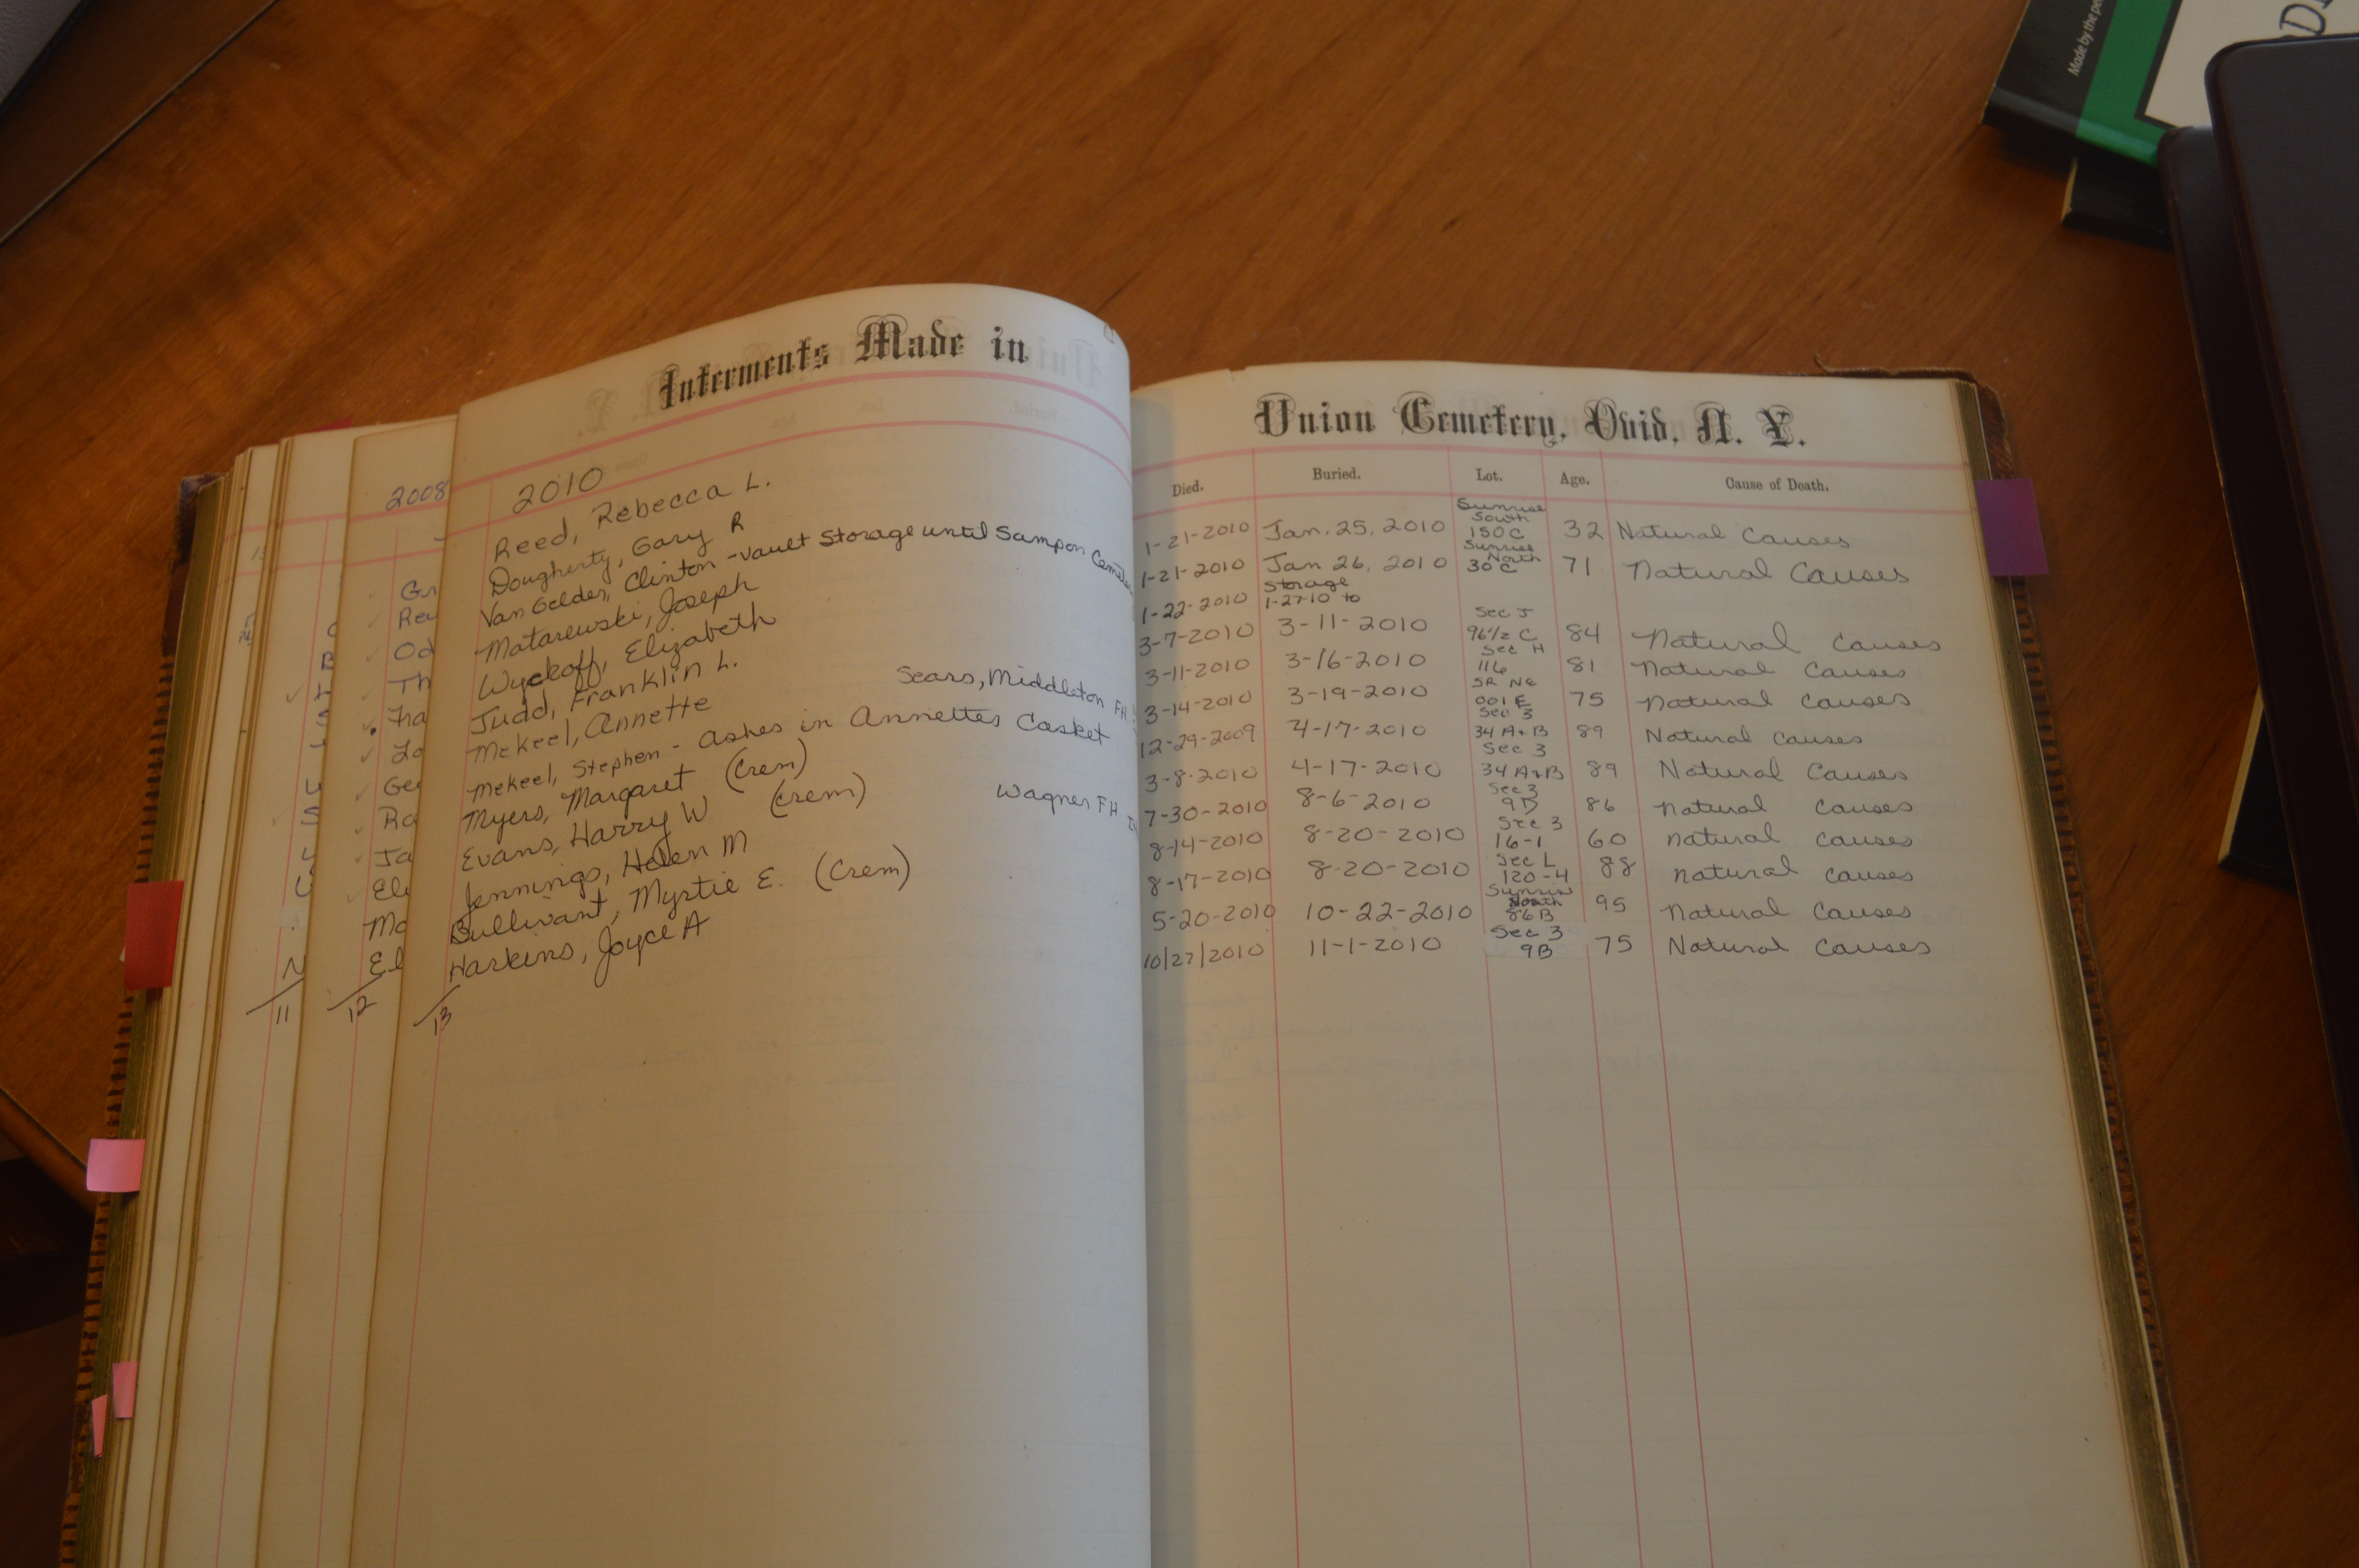 Interments Made in
2010
Reed, Rebecca L.
Dougherty, Gary R
Van Gelder, Clinton - Vault Storage until Sampson
Matarewski, Joseph
Wyckoff, Elizabeth
Judd, Franklin L.
Mekeel, Annette Sears, Middleton FH
Mekeel, Stephen - Ashes in Annettes Casket
Myers, Margaret (Crem)
Evans, Harry W (Crem) Wagner FH
Jennings, Helen M
Bullivant, Myrtie E. (Crem)
Harkins, Joyce A
13
2008
Gr
Rea
Od
Th
Fra
Lo
Ge
Ro
Ja
Ele
Mo
El
12
11
Union Cemetery, Ovid, N. Y.
Died. Buried. Lot. Age. Cause of Death.
1-21-2010 Jan. 25, 2010 Sunrise South 150 C 32 Natural Causes
1-21-2010 Jan 26, 2010 Sunrise North 30 C 71 Natural Causes
1-22-2010 Storage 1-27-10 to
3-7-2010 3-11-2010 Sec J 96 1/2 C 84 Natural Causes
3-11-2010 3-16-2010 Sec H 116 81 Natural Causes
3-14-2010 3-19-2010 SR NE 001 E 75 Natural Causes
12-29-2009 4-17-2010 Sec 3 34 A+B 89 Natural Causes
3-8-2010 4-17-2010 Sec 3 34 A+B 89 Natural Causes
7-30-2010 8-6-2010 Sec 3 9D 86 Natural Causes
8-14-2010 8-20-2010 Sec 3 16-1 60 Natural Causes
8-17-2010 8-20-2010 Sec L 120-H 88 Natural Causes
5-20-2010 10-22-2010 Sunrise North 86B 95 Natural Causes
10/27/2010 11-1-2010 Sec 3 9B 75 Natural Causes
Made by the